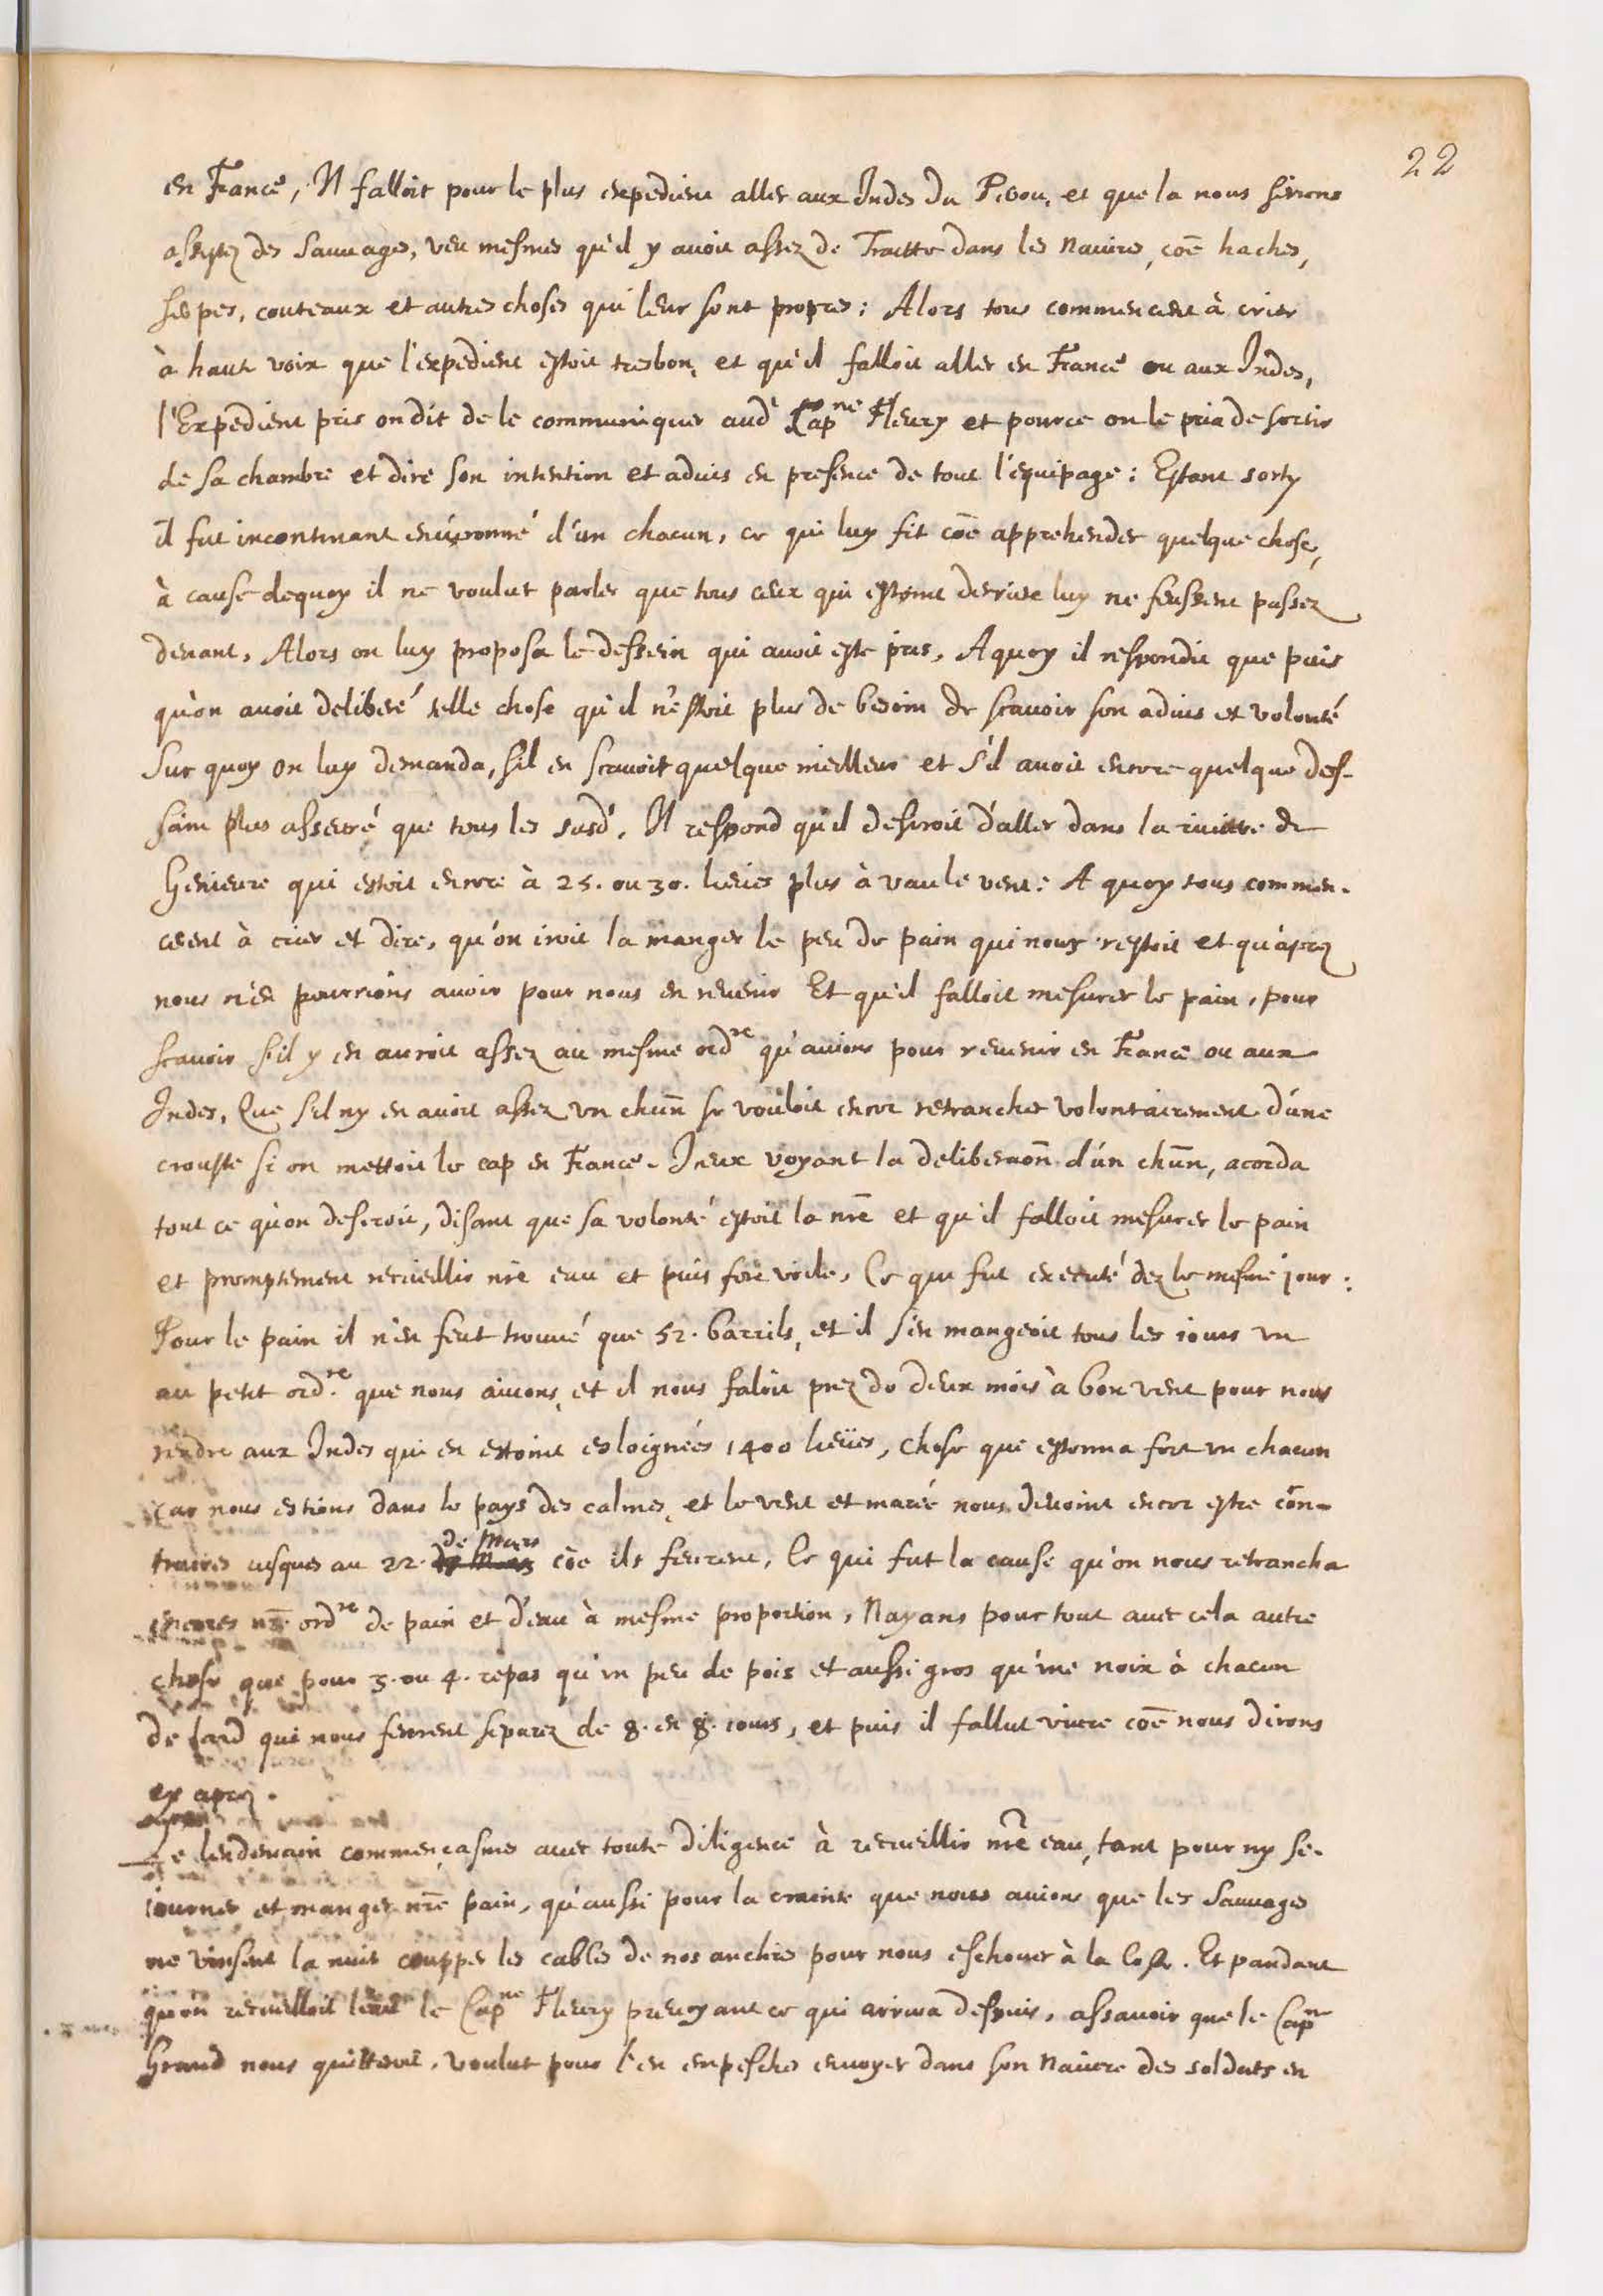 22
en France, Il falloit pour le plus expedient aller aux Indes du Perou, et que la nous serions
assistez des Sauvages, veu mesmes qu'il y avoit assez de Traitte dans les navires, coē haches,
serpes, couteaux et autres choses qui leur sont propres: Alors tous commencent à crier
à haute voix que l'expedient estoit tresbon, et qu'il falloit aller en France ou aux Indes,
l'Expedient pris on dit de le communiquer aud' Capne Fleury et pource on le pria de sortir
de sa chambre et dire son intention et advis en presence de tout l'equipage: Estant sorty
il fut incontinant environné d'un chacun, ce qui luy fit coē apprehender quelque chose,
à cause dequoy il ne voulut parler que tous ceux qui estoint derriere luy ne feussent passez
devant, Alors on luy proposa le dessein qui avoit esté pris, A quoy il respondit que puis
qu'on avoit deliberé telle chose qu'il n'estoit plus de besoin de scavoir son advis et volonté
Sur quoy on luy demanda, s'il en scavoit quelque meilleur et s'il avoit encore quelque des-
sain plus asseuré que tous les susd', Il respond qu'il desiroit d'aller dans la riviere de
Genieure qui estoit encore à 25. ou 30. lieües plus à vau le vent: A quoy tous commen-
cerent à crier et dire, qu'on iroit la manger le peu de pain qui nous restoit et qu'aprez
nous n'en pourrions avoir pour nous en revenir Et qu'il falloit mesurer le pain, pour
scavoir s'il y en auroit assez au mesme ordre qu'avions pour revenir en France ou aux
Indes, Que s'il ny en avoit assez un chūn se vouloit encor retrancher volontairement d'une
crouste si on mettoit le cap en France. Iceux voyant la deliberaōn d'un chūn, acorda
tout ce qu'on desiroit, disant que sa volonté estoit la nrē et qu'il falloit mesurer le pain
et promptement recueillir nrē eau et puis fere voile, Ce que fut executé dez le mesme jour:
Pour le pain il n'en feut trouvé que 52. barrils, et il s'en mangeoit tous les iours un
au petit ordre que nous avions, et il nous faloit prez de deux mois à bon vent pour nous
rendre aux Indes qui en estoint esloignées 1400 lieües, chose que estonna fort un chacun
car nous estions dans le pays des calmes, et le vent et marée nous devoint encor estre con-
traires iusques au 22. de Mars coē ils feurent, Ce qui fut la cause qu'on nous retrancha
encores nrē ordre de pain et d'eau à mesme proportion, Nayans pour tout avec cela autre
chose que pour 3. ou 4. repas qu'un peu de pois et aussi gros qu'une noix à chacun
de lard qui nous feurent separez de 8. en 8. iours, et puis il fallut vivre coē nous dirons
cy aprez.
Le lendemain commençasmes avec toute diligence à recueillir nrē eau, tant pour ny se-
iourner et manger nrē pain, qu'aussi pour la crainte que nous avions que les Sauvages
ne vinsent la nuit coupper les cables de nos anchres pour nous eschouer à la coste. Et pandant
qu'on recueilloit l'eau le Capne Fleury prevoyant ce qui arriva despuis, assavoir que le Capne
Grand nous quitteroit, voulut pour l'en empescher envoyer dans son navire des soldats en